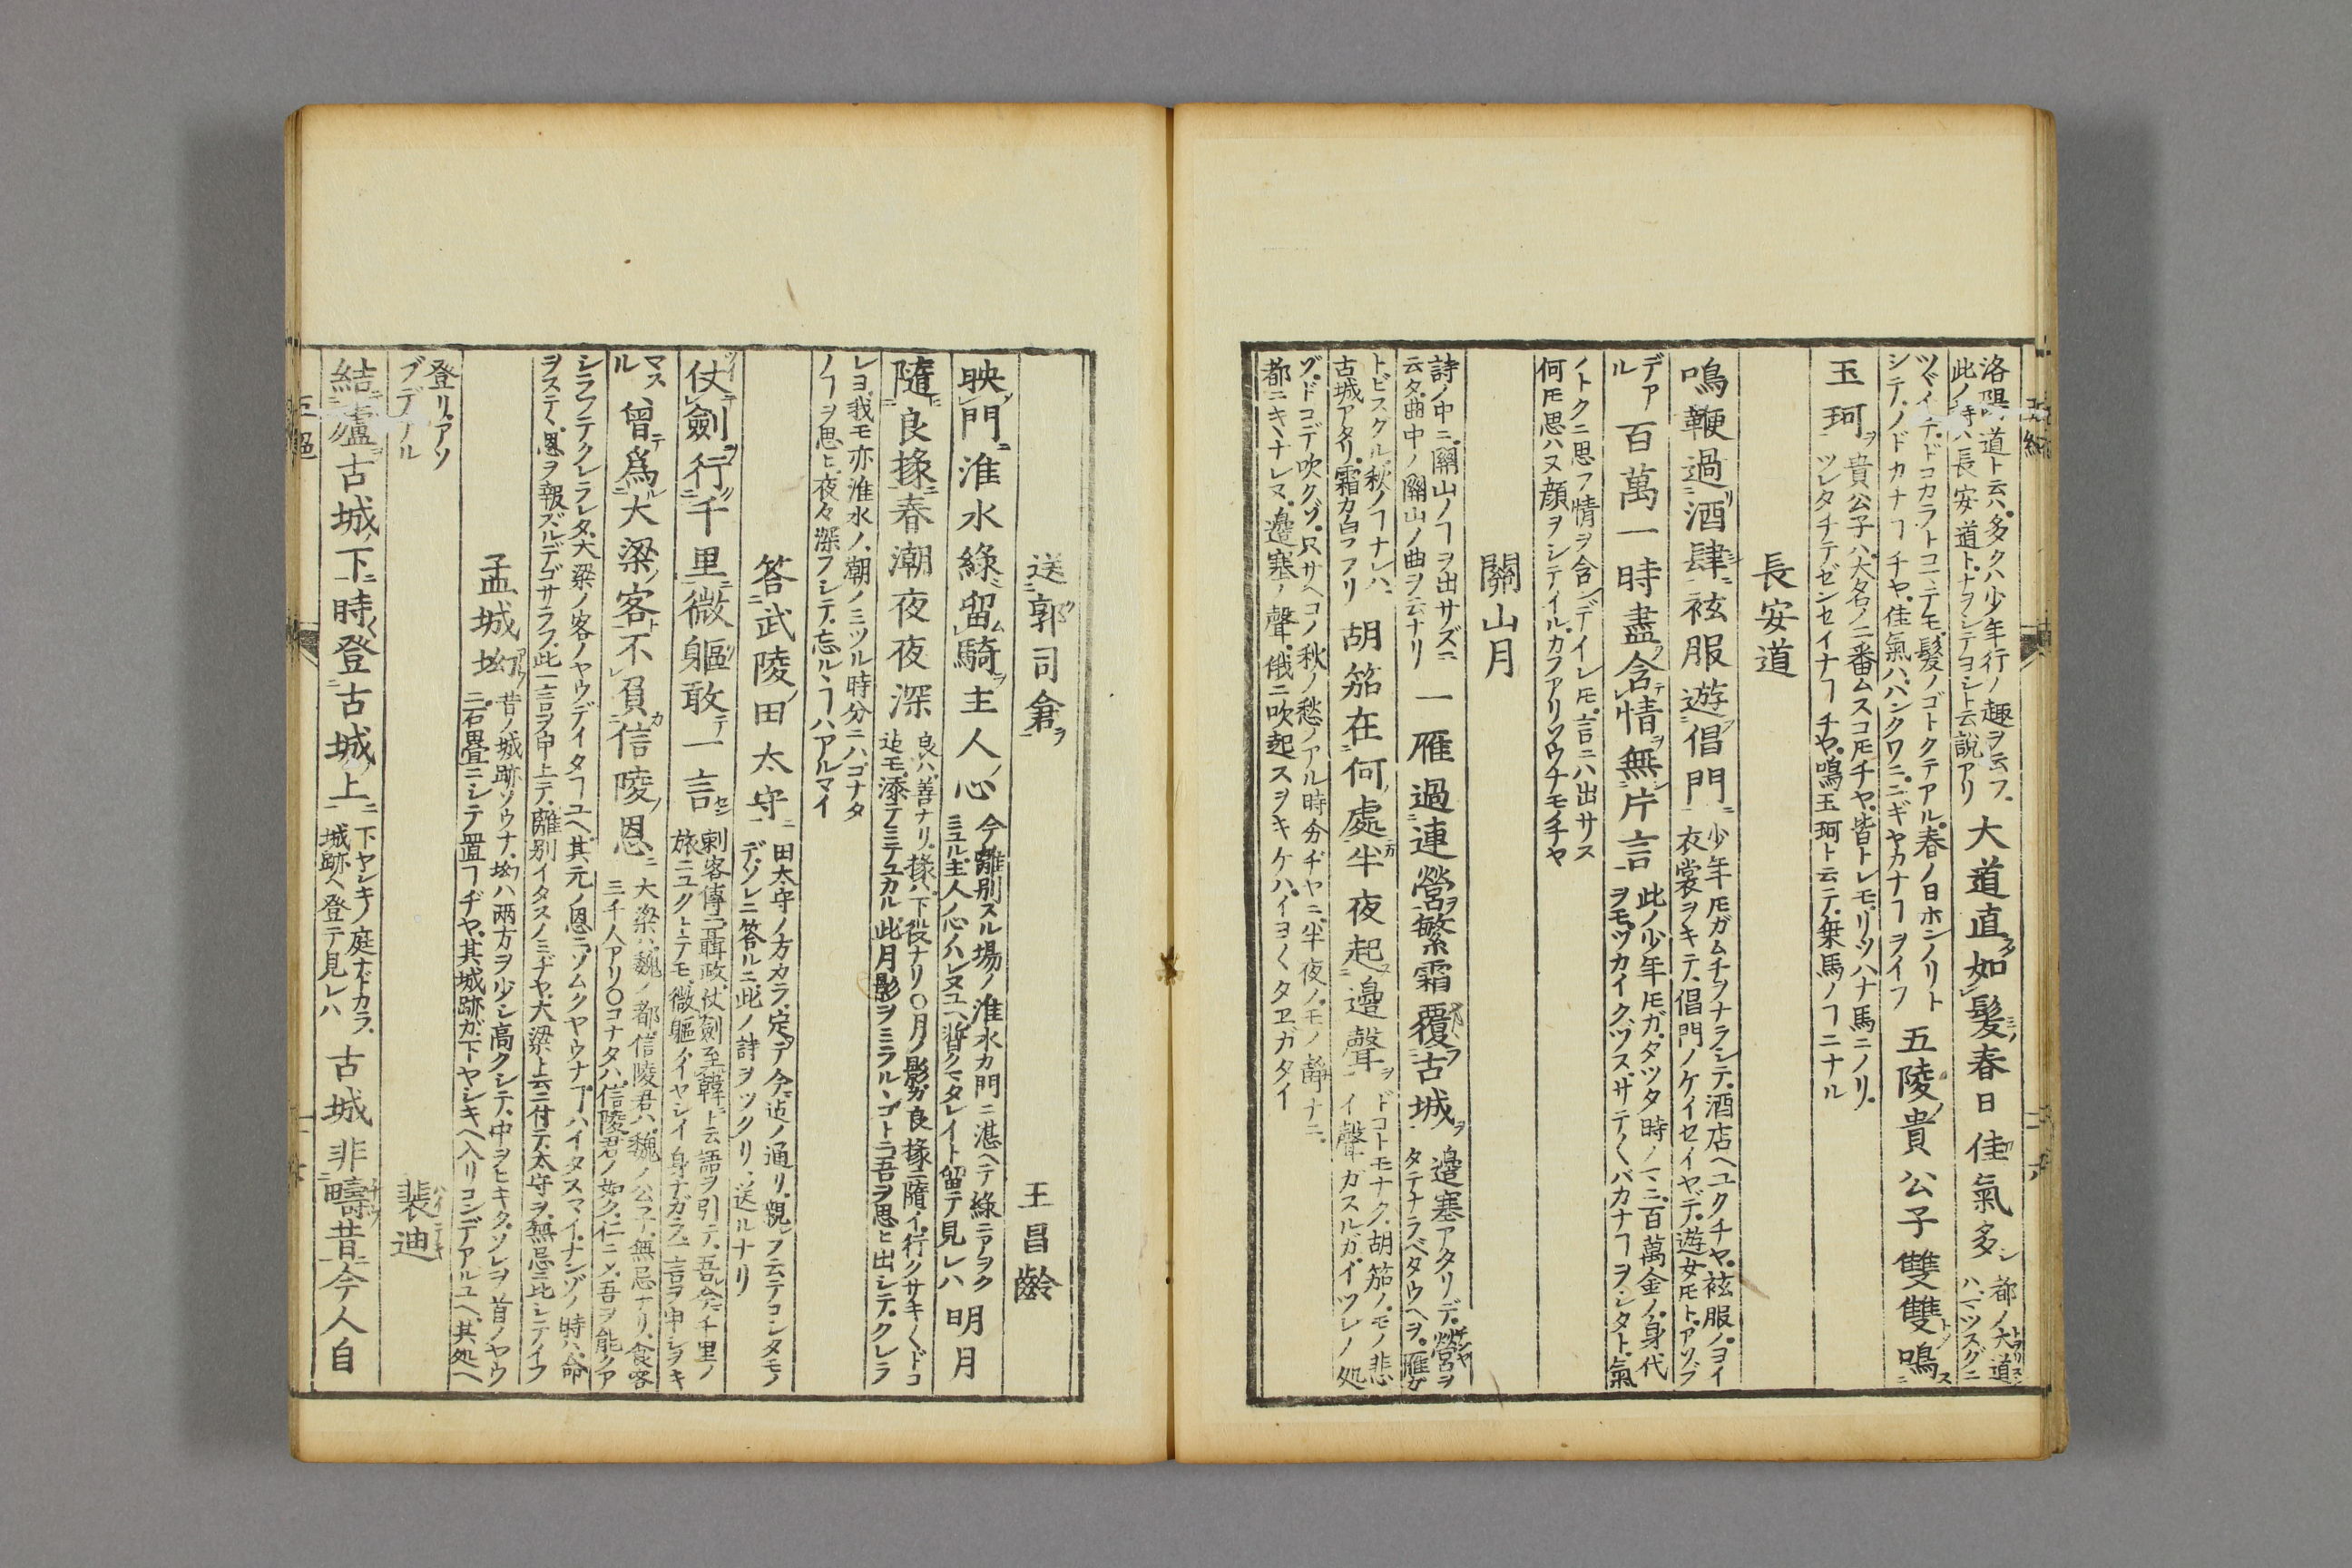 洛陽道ト云ハ多クハ少年行ノ趣ヲ云フ
此ノ時ハ長安道トナヲシテヨシト云説アリ
大道直如髮春日佳氣多
都ノ大道
ハマツスグニ
ツヾイテドコカラトコマテモ髪ノゴトクテアル春ノ日ホンノリト
シテノドカナヿチヤ佳氣ハバンクワニニギヤカナヿヲイフ
五陵貴公子雙雙鳴
玉珂
貴公子ハ大名ノ二番ムスコ𪜈チヤ皆トレモリツハナ馬ニノリ
ツレタチテゼンセイナヿチヤ鳴玉珂ト云テ乗馬ノヿニナル
長安道
鳴鞭過酒肆袨服遊倡門
少年𪜈ガムチヲナラシテ酒店ヘユクチヤ袨服ノヨイ
衣裳ヲキテ倡門ノケイセイヤデ遊女𪜈トアソブ
デア
ル
百萬一時盡含情無片言
此ノ少年𪜈ガタツタ時ノマニ百萬金ノ身代
ヲモツカイクヅスサテ〱バカナヿヲシタト氣
ノトクニ思フ情ヲ含ンデイレ𪜈言ニハ出サス
何𪜈思ハヌ顔ヲシテイルカフアリソウナモノチヤ
關山月
詩ノ中ニ關山ノヿヲ出サズニ
云タ曲中ノ關山ノ曲ヲ云ナリ
一雁過連營繁霜覆古城
邊塞アタリデ營ヲ
タテナラベタウヘヲ雁ガ
トビスグル秋ノヿナレハ
古城アタリ霜カ白フフリ
胡笳在何處半夜起邊聲
ドコトモナク胡笳ノモノ悲
イ聲ガスルガイツレノ処
ゾドコデ吹クゾ只サヘコノ秋ノ愁ノアル時分ヂヤニ半夜ノモノ靜ナニ
都ニキヽナレヌ邊塞ノ聲俄ニ吹起スヲキケハイヨ〱タヱガタイ
送郭司倉
王昌齡
映門淮水綠留騎主人心
今離別スル場ノ淮水カ門ニ湛ヘテ綠ニアヲク
ミユル主人ノ心ノハレヌユヘ暫クマタレイト留テ見レハ
明月
隨良掾春潮夜夜深
良ハ善ナリ掾ハ下役ナリ〇月ノ影ガ良掾ニ隨イ行クサキ〱ドコ
迠モ添テミテユカル此月影ヲミラルヽゴトニ吾ヲ思ヒ出シテクレラ
レヨ我モ亦淮水ノ潮ノミツル時分ニハゴナタ
ノヿヲ思ヒ夜々深フシテ忘ルヽヿハアルマイ
答武陵田太守
田太守ノ方カラ定テ今迠ノ通リ親シフ云テコシタモノ
デソレニ答ルニ此ノ詩ヲツクリ送ルナリ
仗劍行千里微軀敢一言
刺客傳ニ聶政仗劍至韓ト云語ヲ引テ吾レ今ニ千里ノ
旅ニユクトテモ微軀イヤシイ身ナガラ一言ヲ申シヲキ
マス
ル
曾爲大梁客不負信陵恩
大梁ハ魏ノ都信陵君ハ魏ノ公子無忌ナリ食客
三千人アリ〇コナタハ信陵君ノ如ク仁ニメ吾ヲ能クア
シラフテクレラレタ大梁ノ客ノヤウデイタヿユヘ其元ノ恩ニソムクヤウナヿハイタスマイナンゾノ時ハ命
ヲステヽ恩ヲ報ズルデゴサラフ此一言ヲ申上テ離別イタスノミヂヤ大梁ト云ニ付テ太守ヲ無忌ニ比シテイフ
孟城坳
昔ノ城跡ソウナ坳ハ兩方ヲ少シ高クシテ中ヲヒキクソレヲ首ノヤウ
ニ石畳ニシテ置ヿヂヤ其城跡ガ下ヤシキヘ入リコンデアルユヘ其処ヘ
登リアソ
ブデアル
裴迪
結廬古城下時登古城上
下ヤシキノ庭ナドカラ
城跡ヘ登テ見レハ
古城非疇昔今人自